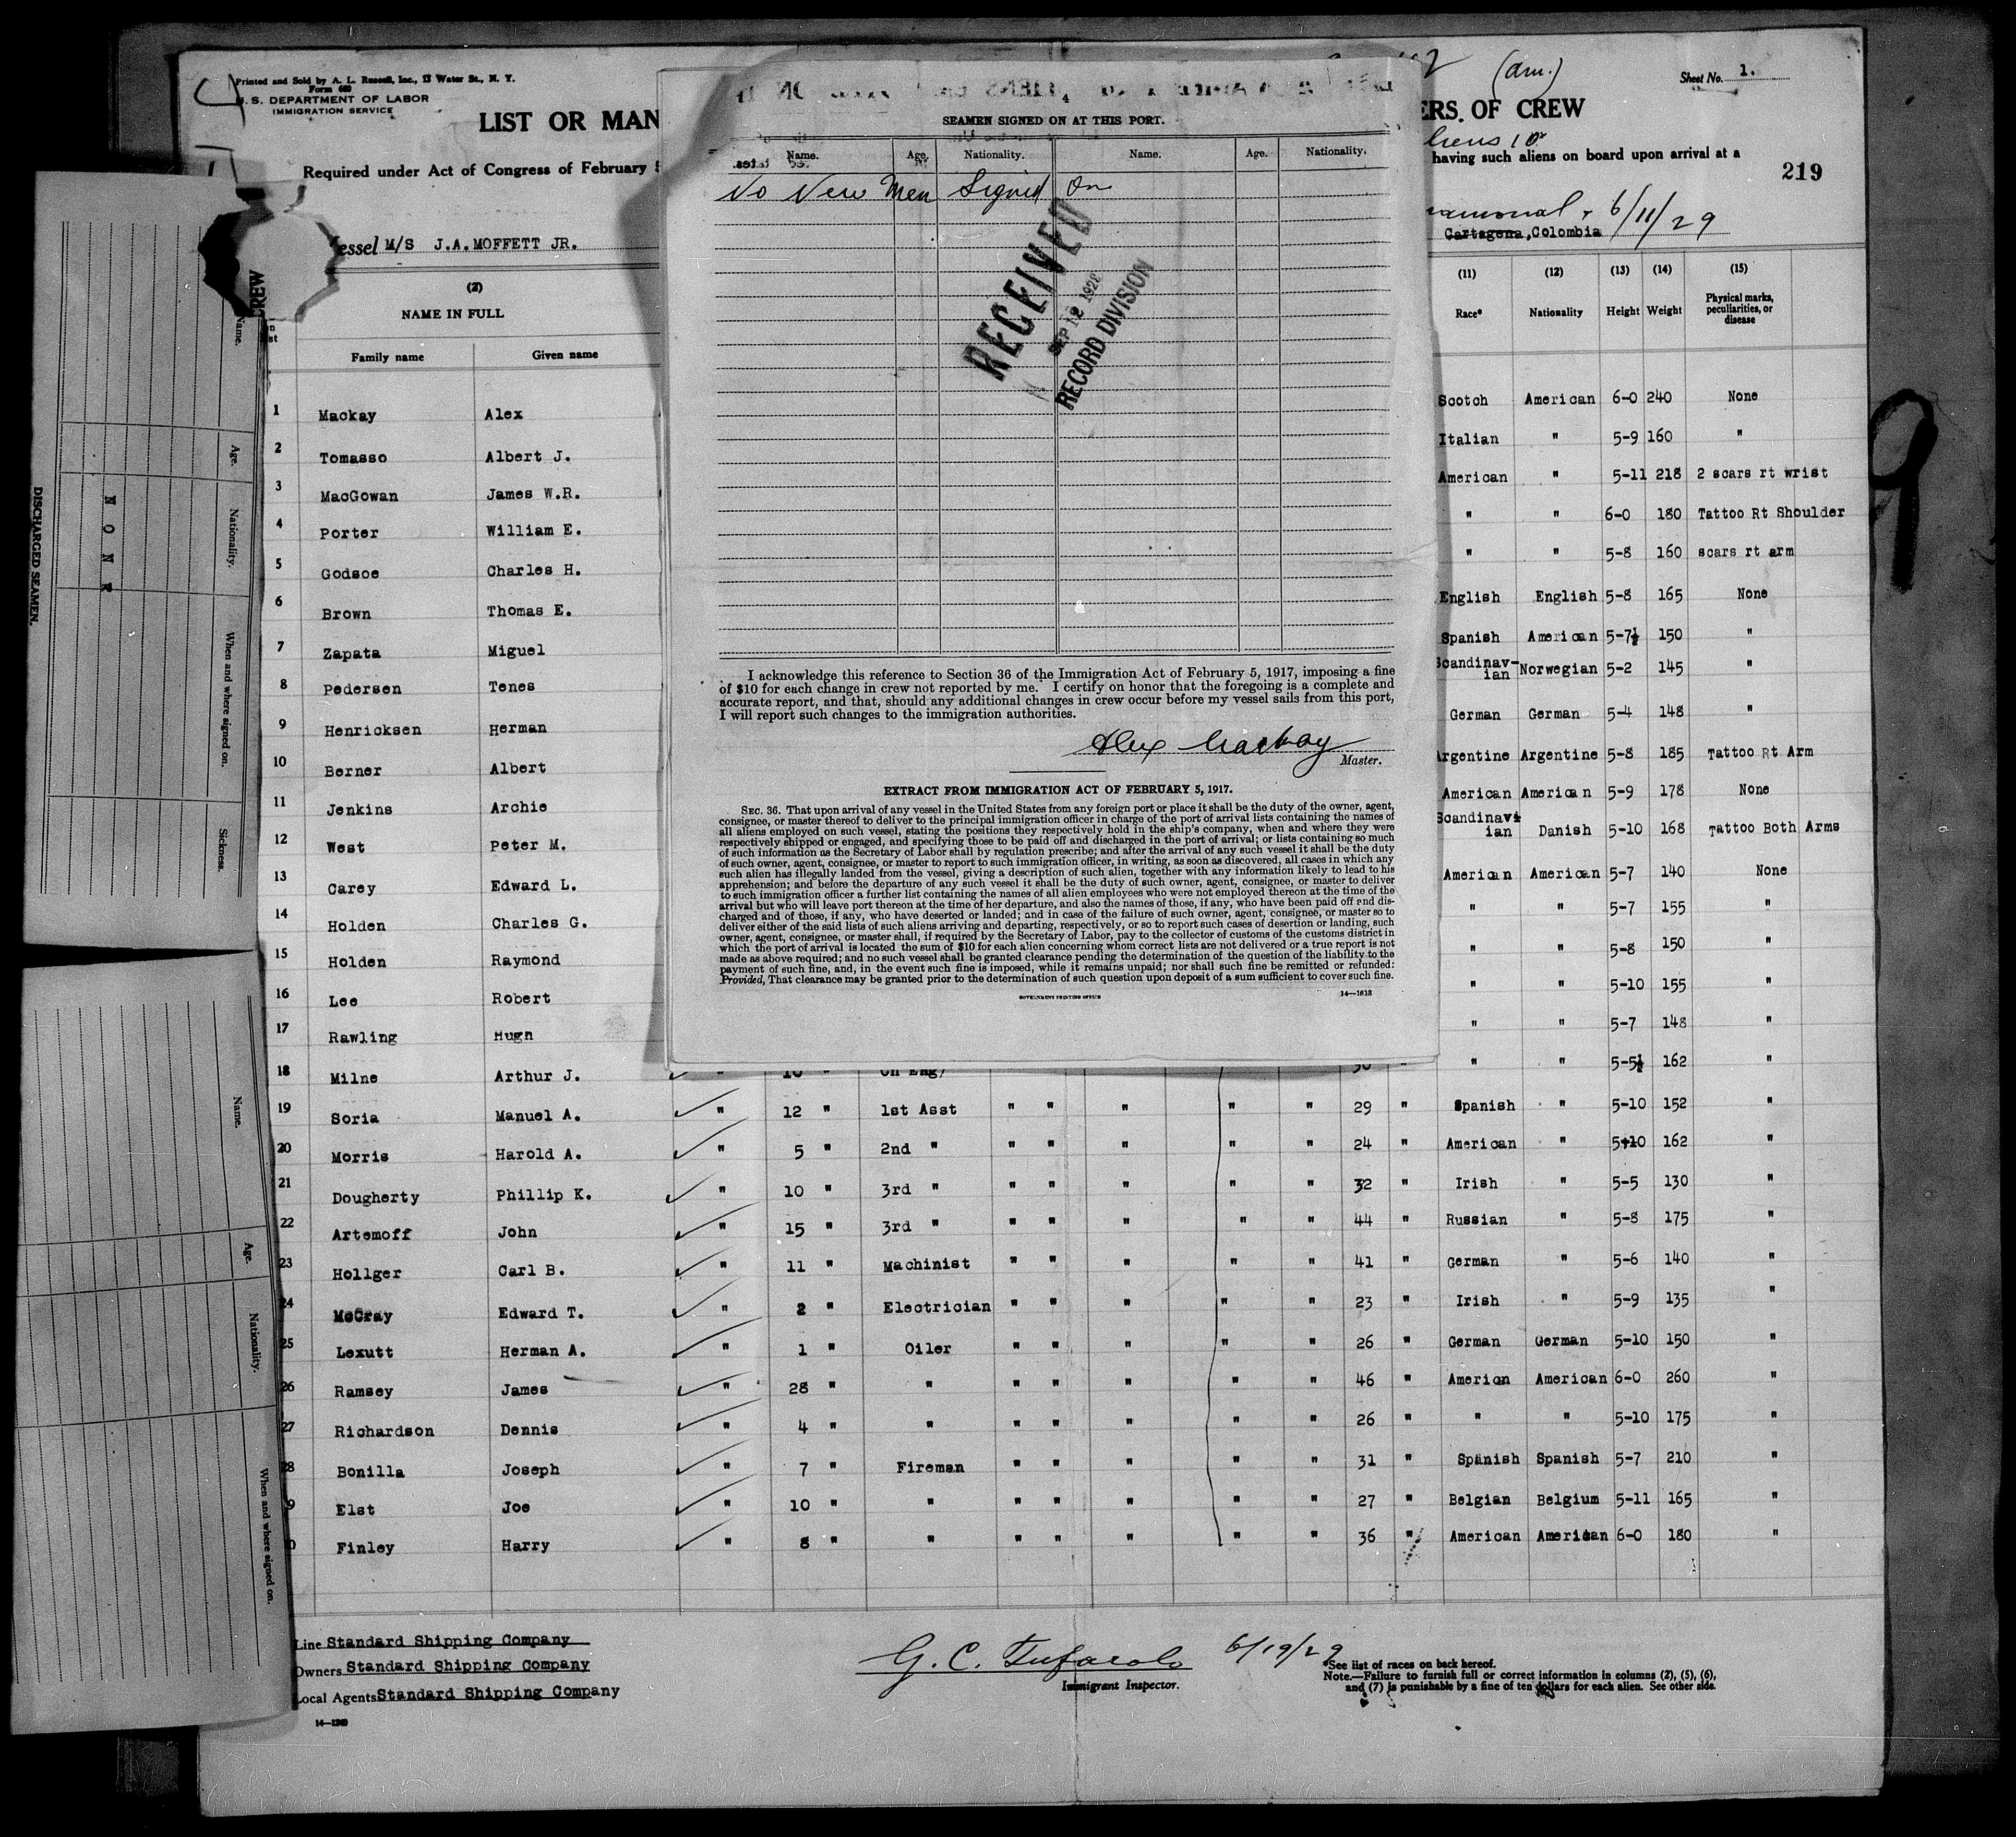 Printed and Sold by A. L. Russell, Inc., 13 Water St., N. Y.
Form 680
U. S. DEPARTMENT OF LABOR
IMMIGRATION SERVICE
(Am.)
Sheet No. 1.
LIST OR MAN
ERS OF CREW
Required under Act of Congress of February
having such aliens on board upon arrival at a
219
6/11/29
Vessel M/S J.A.MOFFETT JR.
Cartagena, Colombia
(2)
NAME IN FULL
Family name Given name
(11) Race*
(12) Nationality
(13) Height
(14) Weight
(15) Physical marks, peculiarities, or disease
1 Mackay Alex Scotch American 6-0 240 None
2 Tomasso Albert J. Italian " 5-9 160 "
3 MacGowan James W.R. American " 5-11 218 2 scars rt wrist
4 Porter William E. " " 6-0 180 Tattoo Rt Shoulder
5 Godsoe Charles H. " " 5-8 160 scars rt arm
6 Brown Thomas E. English English 5-8 165 None
7 Zapata Miguel Spanish American 5-7½ 150 "
8 Pedersen Tenes Scandinav-ian Norwegian 5-2 145 "
9 Henricksen Herman German German 5-4 148 "
10 Berner Albert Argentine Argentine 5-8 185 Tattoo Rt Arm
11 Jenkins Archie American American 5-9 178 None
12 West Peter M. Scandinavi ian Danish 5-10 168 Tattoo Both Arms
13 Carey Edward L. American American 5-7 140 None
14 Holden Charles G. " " 5-7 155 "
15 Holden Raymond " " 5-8 150 "
16 Lee Robert " " 5-10 155 "
17 Rawling Hugn " " 5-7 148 "
18 Milne Arthur J. " " 5-5½ 162 "
19 Soria Manuel A. " 12 " 1st Asst " " " " " 29 " Spanish " 5-10 152 "
20 Morris Harold A. " 5 " 2nd " " " " " " 24 " American " 5-10 162 "
21 Dougherty Phillip K. " 10 " 3rd " " " " " " 32 " Irish " 5-5 130 "
22 Artemoff John " 15 " 3rd " " " " " " 44 " Russian " 5-8 175 "
23 Hollger Carl B. " 11 " Machinist " " " " " 41 " German " 5-6 140 "
24 McCray Edward T. " 2 " Electrician " " " " " 23 " Irish " 5-9 135 "
25 Lexutt Herman A. " 1 " Oiler " " " " " 26 " German German 5-10 150 "
26 Ramsey James " 28 " " " " " " " 46 " Amerion American 6-0 260 "
27 Richardson Dennis " 4 " " " " " " " 26 " " " 5-10 175 "
28 Bonilla Joseph " 7 " Fireman " " " " " 31 " Spanish Spanish 5-7 210 "
9 Elst Joe " 10 " " " " " " " 27 " Belgian Belgium 5-11 165 "
0 Finley Harry " 8 " " " " " " " 36 " American American 6-0 180 "
Line Standard Shipping Company
Owners Standard Shipping Company
Local Agents Standard Shipping Company
14—1240
G. C. Tufarolo 6/19/29
Immigrant Inspector.
*See list of races on back hereof.
Note.—Failure to furnish full or correct information in columns (2), (5), (6),
and (7) is punishable by a fine of ten dollars for each alien. See other side.
SEAMEN SIGNED ON AT THIS PORT.
Name. Age. Nationality. Name. Age. Nationality.
No New Men Signed On
RECEIVED
SEP 12 1928
RECORD DIVISION
I acknowledge this reference to Section 36 of the Immigration Act of February 5, 1917, imposing a fine
of $10 for each change in crew not reported by me. I certify on honor that the foregoing is a complete and
accurate report, and that, should any additional changes in crew occur before my vessel sails from this port,
I will report such changes to the immigration authorities.
Alex Mackay
Master.
EXTRACT FROM IMMIGRATION ACT OF FEBRUARY 5, 1917.
SEC. 36. That upon arrival of any vessel in the United States from any foreign port or place it shall be the duty of the owner, agent,
consignee, or master thereof to deliver to the principal immigration officer in charge of the port of arrival lists containing the names of
all aliens employed on such vessel, stating the positions they respectively hold in the ship's company, when and where they were
respectively shipped or engaged, and specifying those to be paid off and discharged in the port of arrival; or lists containing so much
of such information as the Secretary of Labor shall by regulation prescribe; and after the arrival of any such vessel it shall be the duty
of such owner, agent, consignee, or master to report to such immigration officer, in writing, as soon as discovered, all cases in which any
such alien has illegally landed from the vessel, giving a description of such alien, together with any information likely to lead to his
apprehension; and before the departure of any such vessel it shall be the duty of such owner, agent, consignee, or master to deliver
to such immigration officer a further list containing the names of all alien employees who were not employed thereon at the time of the
arrival but who will leave port thereon at the time of her departure, and also the names of those, if any, who have been paid off and dis-
charged and of those, if any, who have deserted or landed; and in case of the failure of such owner, agent, consignee, or master so to
deliver either of the said lists of such aliens arriving and departing, respectively, or so to report such cases of desertion or landing, such
owner, agent, consignee, or master shall, if required by the Secretary of Labor, pay to the collector of customs of the customs district in
which the port of arrival is located the sum of $10 for each alien concerning whom correct lists are not delivered or a true report is not
made as above required; and no such vessel shall be granted clearance pending the determination of the question of the liability to the
payment of such fine, and, in the event such fine is imposed, while it remains unpaid; nor shall such fine be remitted or refunded:
Provided, That clearance may be granted prior to the determination of such question upon deposit of a sum sufficient to cover such fine.
GOVERNMENT PRINTING OFFICE 14—1618
DISCHARGED SEAMEN.
CREW
Name. Age. Nationality. When and where signed on. Sickness.
N O N A
Name. Age. Nationality. When and where signed on.